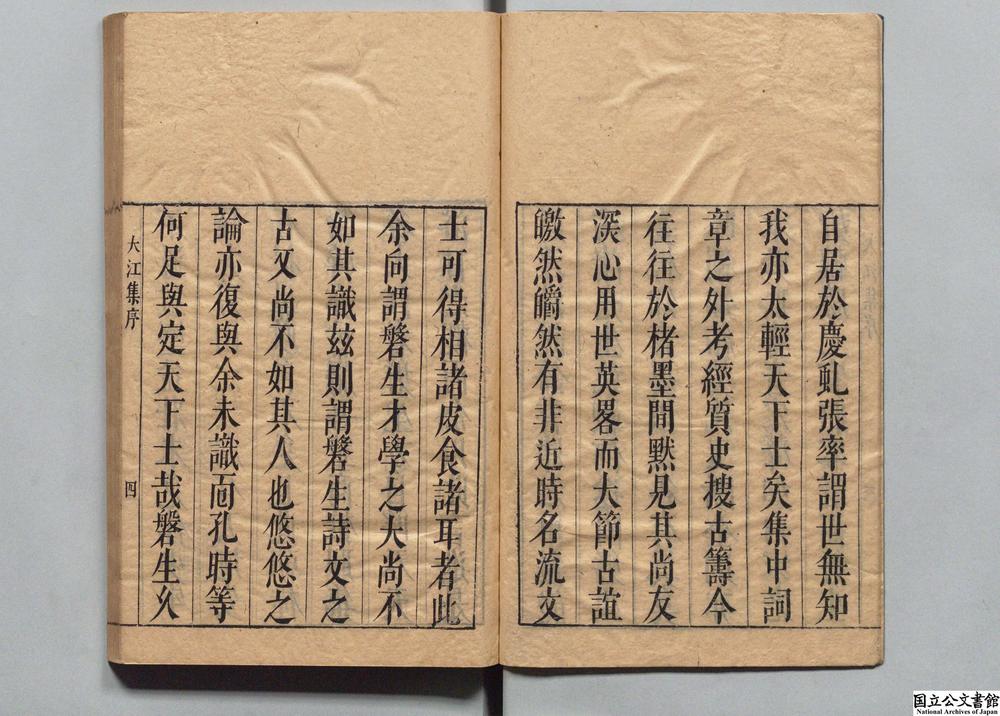 自居於慶虬張率謂世無知
我亦太輕天下士矣集中詞
章之外考經質史搜古籌今
往往於楮墨間默見其尚友
深心用世英畧而大節古誼
皦然皭然有非近時名流文
士可得相諸皮食諸耳者此
余向謂磐生才學之大尚不
如其識玆則謂磐生詩文之
古又尚不如其人也悠悠之
論亦復與余未識靣孔時等
何足與定天下士哉磐生久
大江集序
四
国立公文書館
National Archives of Japan